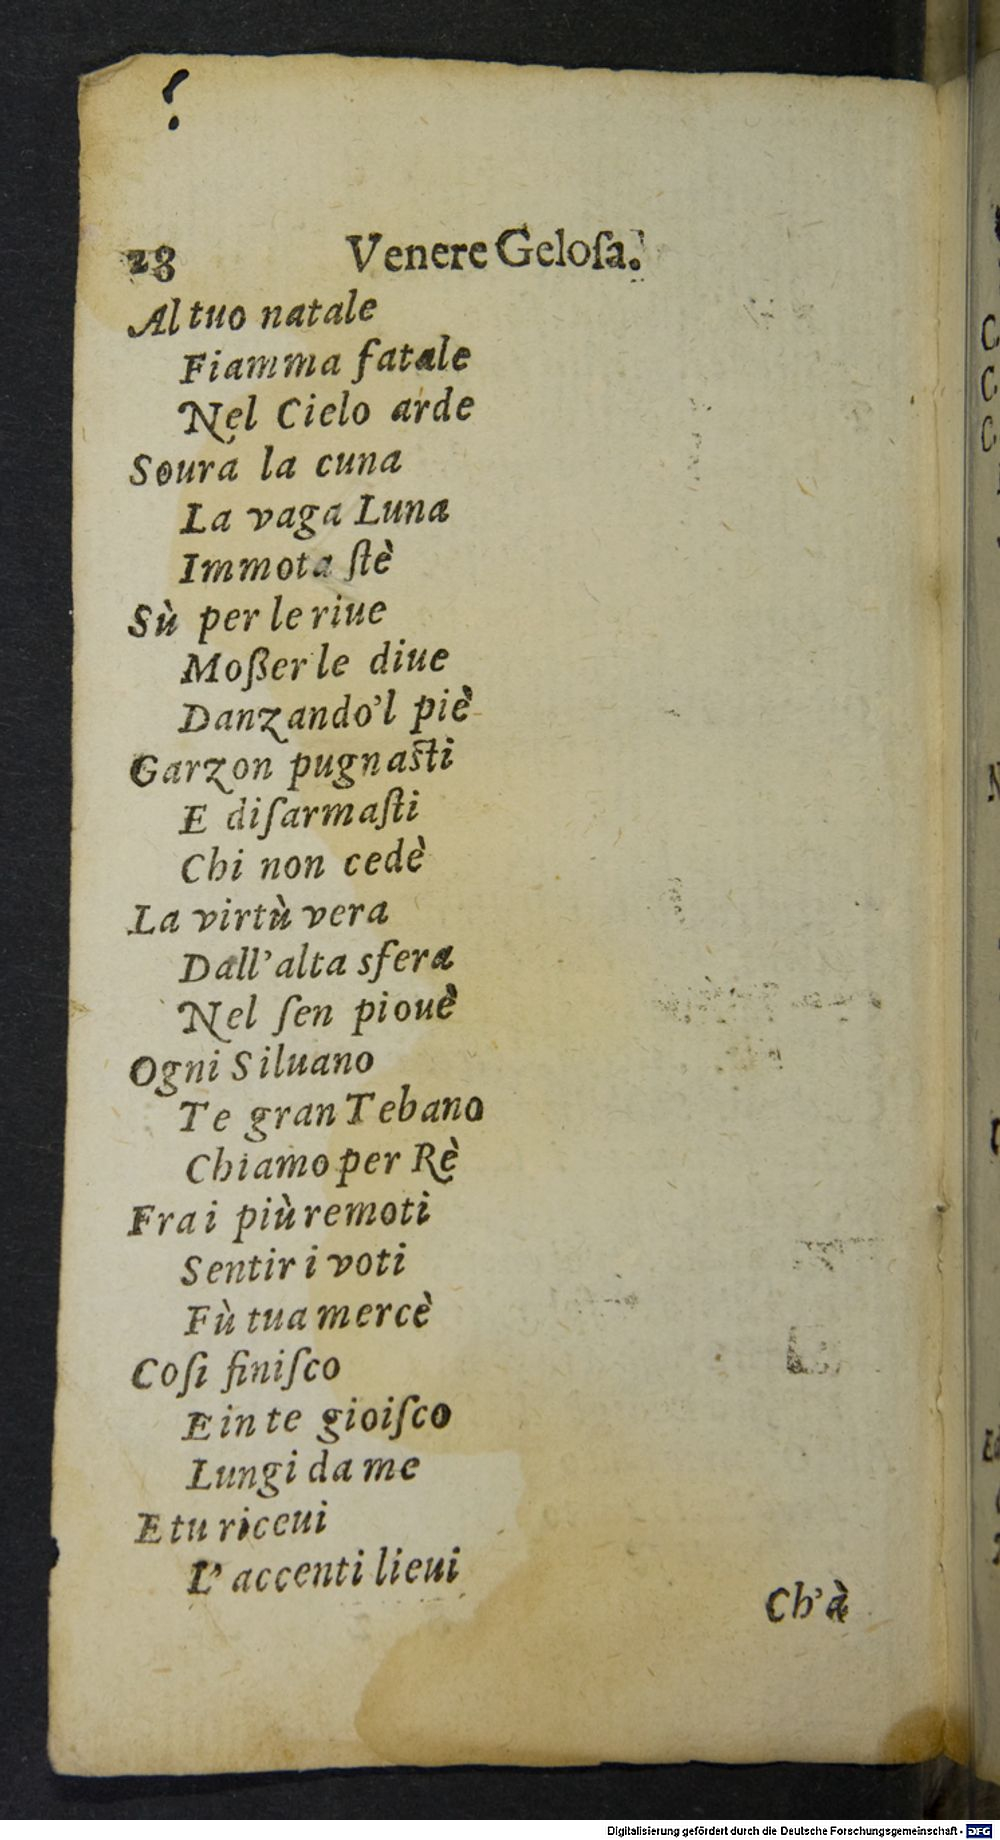 28 Venere Geloſa.
Al tuo natale
Fiamma fatale
Nel Cielo arde
Soura la cuna
La vaga Luna
Immota ſtè
Sù per le riue
Moßer le diue
Danzando'l piè
Garzon pugnaſti
E diſarmaſti
Chi non cedè
La virtù vera
Dall'alta sfera
Nel ſen piouè
Ogni Siluano
Te gran Tebano
Chiamo per Rè
Fra i più remoti
Sentir i voti
Fù tua mercè
Coſi finiſco
E in te gioiſco
Lungi da me
E tu riceui
L'accenti lieui
Ch'à
Digitalisierung gefördert durch die Deutsche Forschungsgemeinschaft - DFG